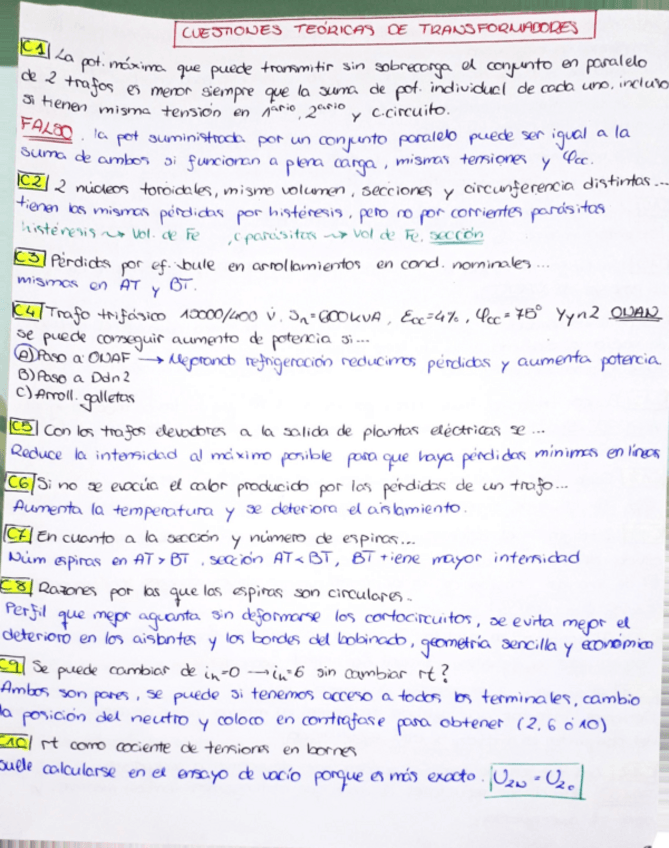 CUESTIONES TEÓRICAS DE TRANSFORMADORES
C1 La pot. máxima que puede transmitir sin sobrecarga el conjunto en paralelo
de 2 trafos es menor siempre que la suma de pot. individual de cada uno, incluso
si tienen misma tensión en 1ario, 2ario y c.circuito.
FALSO. la pot suministrada por un conjunto paralelo puede ser igual a la
suma de ambos si funcionan a plena carga, mismas tensiones y φcc.
C2 2 núcleos toroidales, mismo volumen, secciones y circunferencia distintas...
tienen las mismas pérdidas por histéresis, pero no por corrientes parásitas
histéresis → Vol. de Fe , c parásitas → vol de Fe, sección
C3 Pérdidas por ef. Joule en arrollamientos en cond. nominales...
mismas en AT y BT.
C4 Trafo trifásico 10000/400 V. Sn=600kVA, Ecc=4%, φcc=75° Yyn2 ONAN
se puede conseguir aumento de potencia si...
A) Paso a ONAF → Mejorando refrigeración reducimos pérdidas y aumenta potencia
B) Paso a Ddn2
C) Arroll. galletas
C5 Con los trafos elevadores a la salida de plantas eléctricas se ...
Reduce la intensidad al máximo posible para que haya pérdidas mínimas en líneas
C6 Si no se evacúa el calor producido por las pérdidas de un trafo...
Aumenta la temperatura y se deteriora el aislamiento.
C7 En cuanto a la sección y número de espiras...
Núm espiras en AT > BT , sección AT < BT, BT tiene mayor intensidad
C8 Razones por las que las espiras son circulares.
Perfil que mejor aguanta sin deformarse los cortocircuitos, se evita mejor el
deterioro en los aislantes y los bordes del bobinado, geometría sencilla y económica
C9 Se puede cambiar de in=0 → in=6 sin cambiar rt?
Ambos son pares, se puede si tenemos acceso a todos los terminales, cambio
la posición del neutro y coloco en contrafase para obtener (2, 6 ó 10)
C10 rt como cociente de tensiones en bornes
suele calcularse en el ensayo de vacío porque es más exacto. U2N = U20